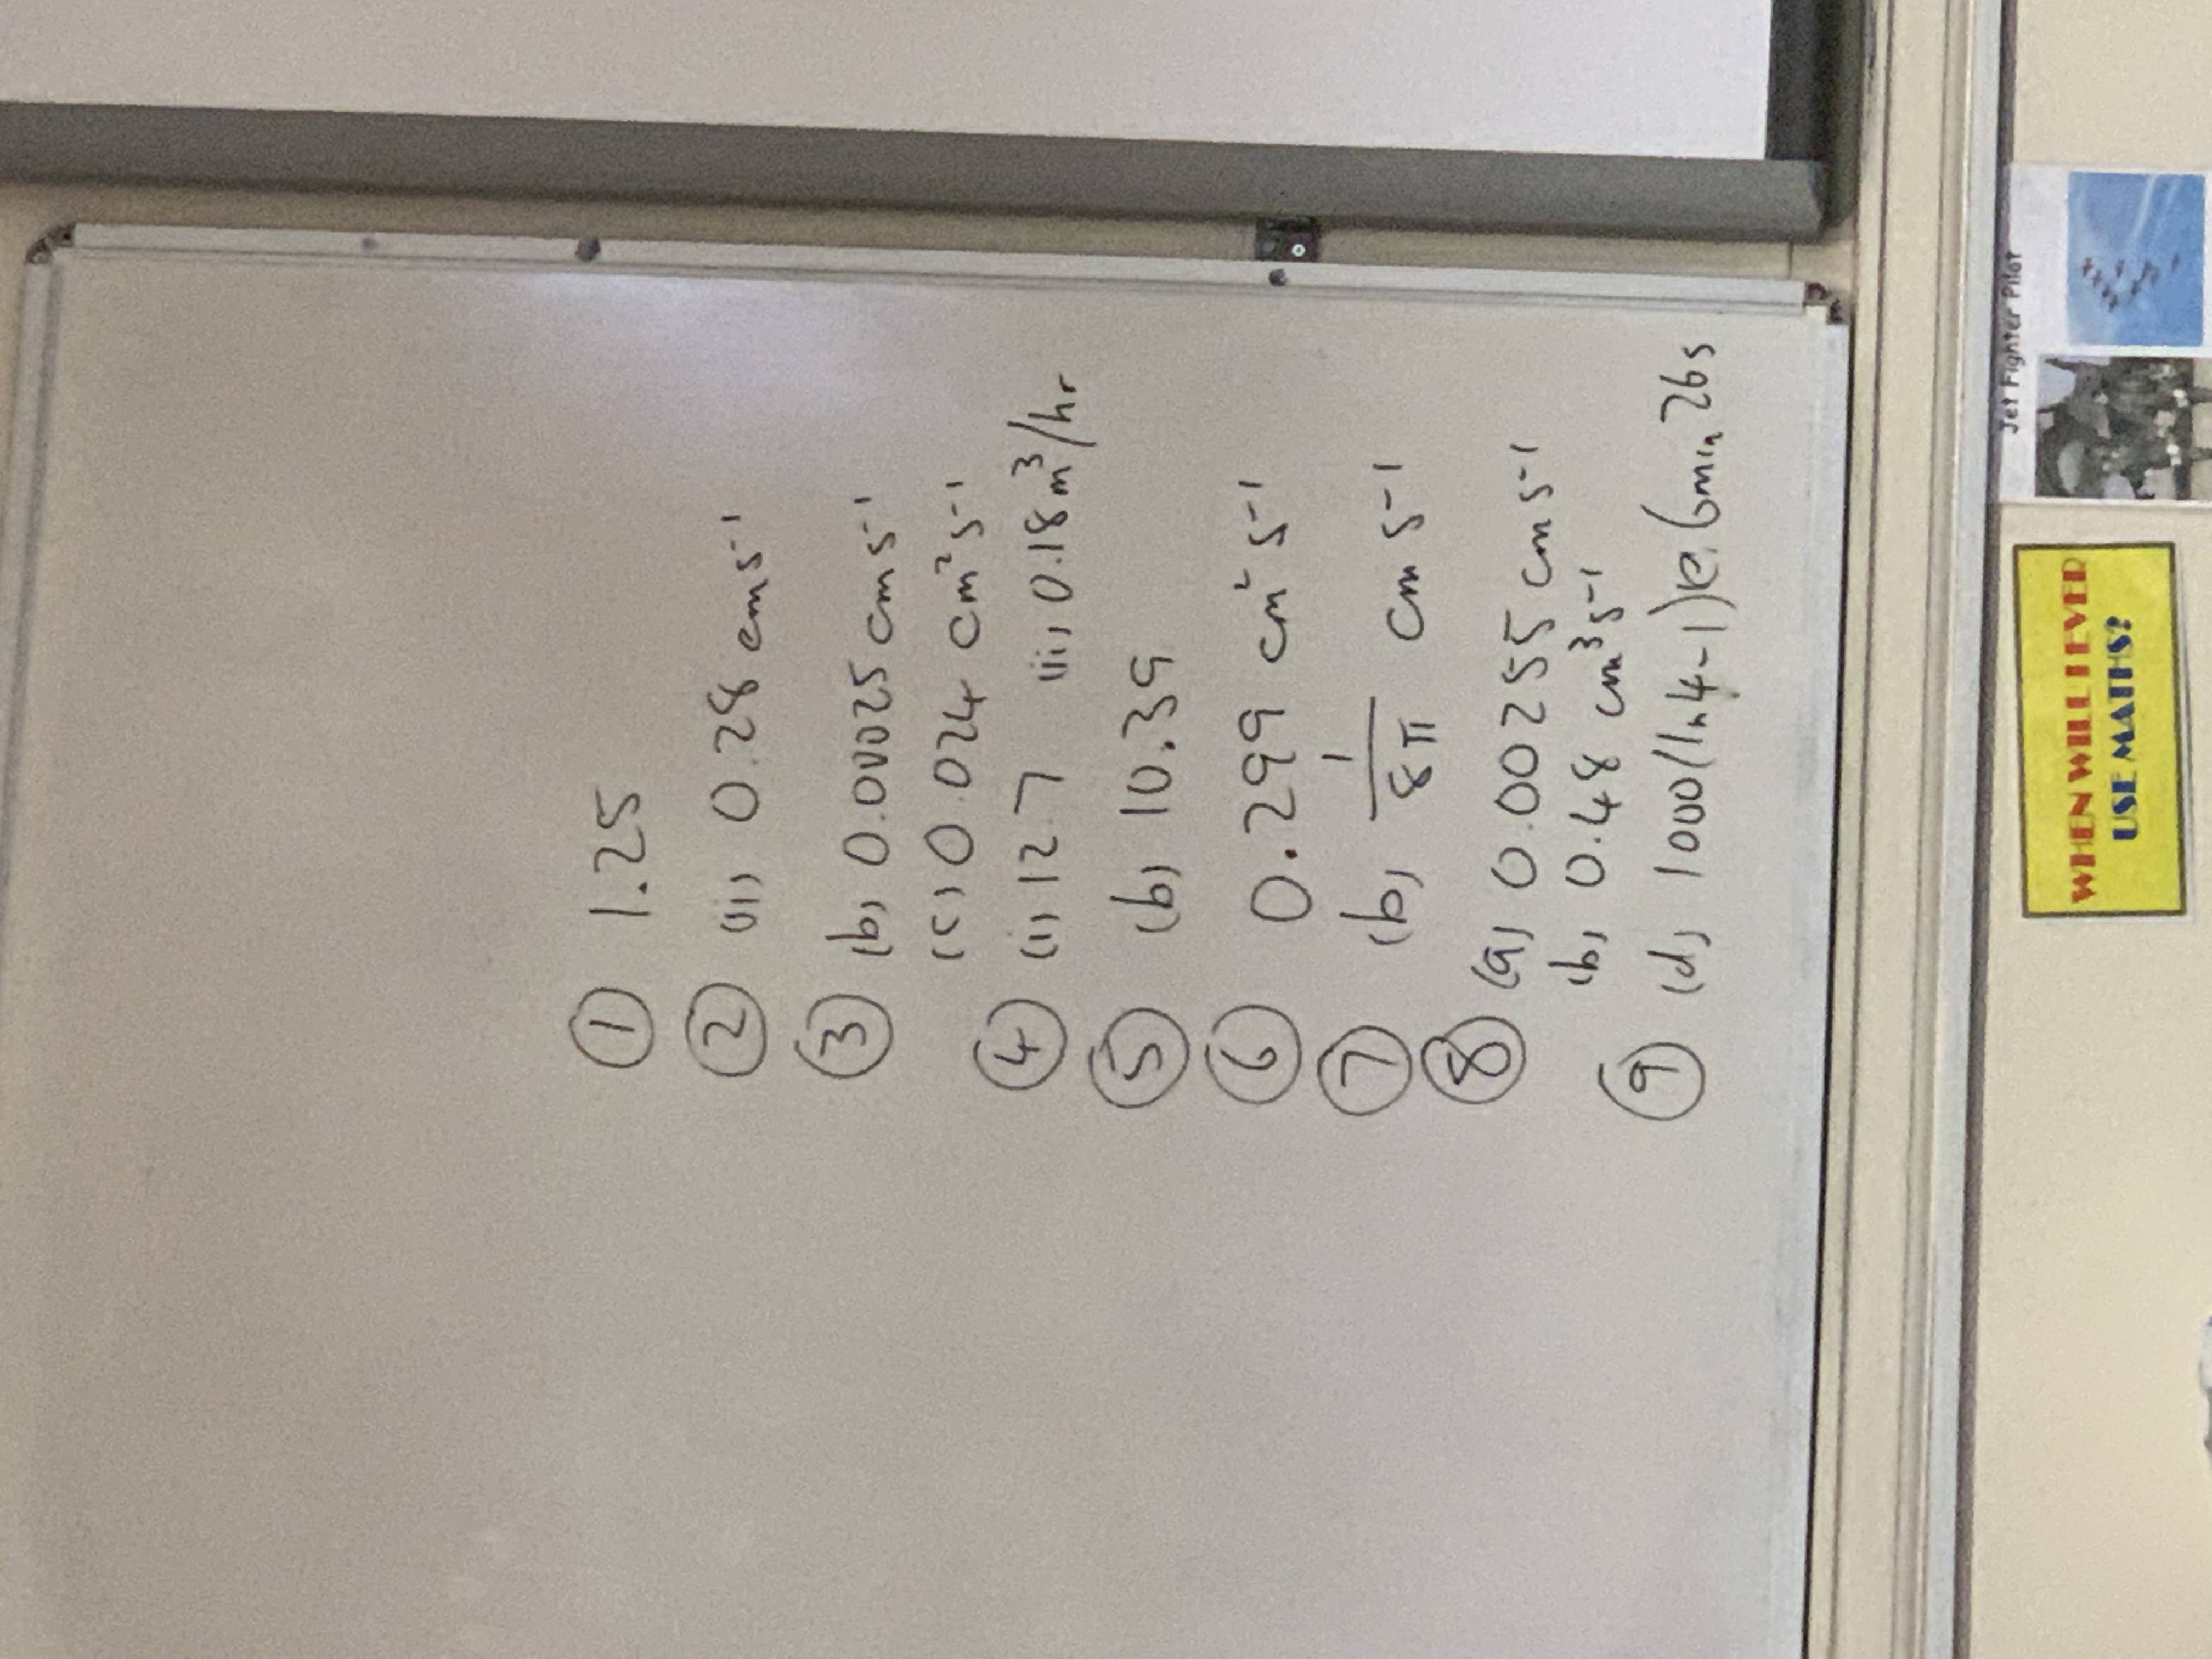 ① 1.25
② (ii) 0.28 cms⁻¹
③ (b) 0.00025 cms⁻¹
(c) 0.024 cm²s⁻¹
④ (i) 12.7 (ii) 0.18 m³/hr
⑤ (b) 10.39
⑥ 0.299 cm² s⁻¹
⑦ (b) 1/8π cm s⁻¹
⑧ (a) 0.00255 cm s⁻¹
(b) 0.48 cm³s⁻¹
⑨ (d) 1000(ln4-1) 6min 26s
Jet Fighter Pilot
WHEN WILL I EVER
USE MATHS?